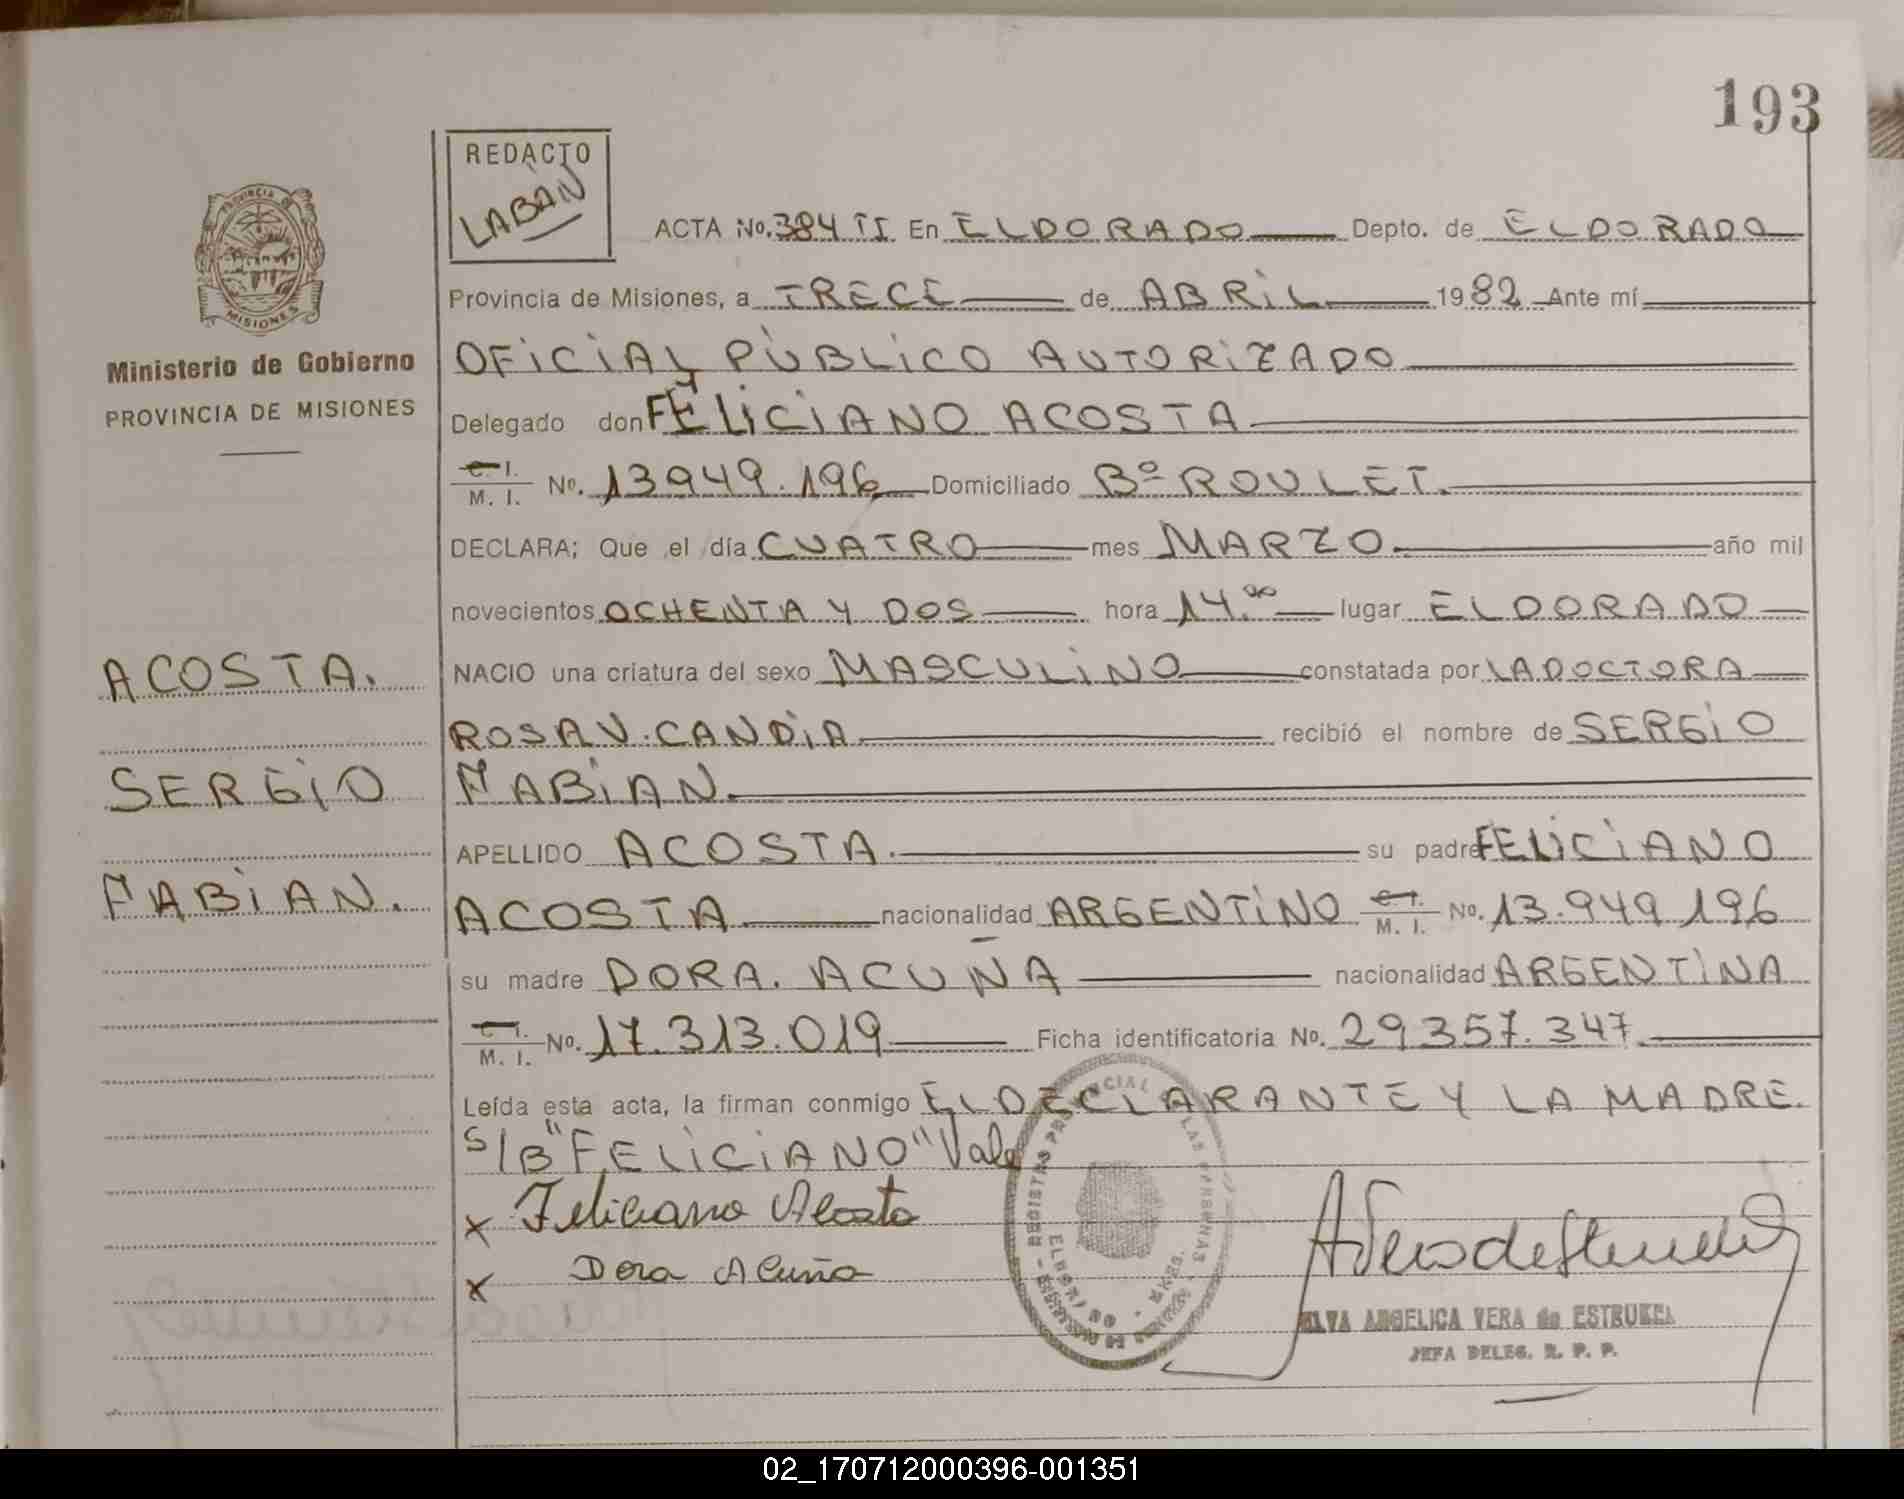 193
REDACTO
LABAN
PROVINCIA
MISIONES
Ministerio de Gobierno
PROVINCIA DE MISIONES
ACTA No. 384 II En ELDORADO Depto. de ELDORADO
Provincia de Misiones, a TRECE de ABRIL 1982 Ante mí
OFICIAL PÚBLICO AUTORIZADO
Delegado don FELICIANO ACOSTA
C. I.
M. I. No. 13949.196 Domiciliado Bº ROULET.
DECLARA; Que el día CUATRO mes MARZO. año mil
novecientos OCHENTA Y DOS hora 14.00 lugar ELDORADO
NACIO una criatura del sexo MASCULINO constatada por LA DOCTORA
ROSA V. CANDIA recibió el nombre de SERGIO
FABIAN.
APELLIDO ACOSTA. su padre FELICIANO
ACOSTA nacionalidad ARGENTINO C. I.
M. I. No. 13.949 196
su madre DORA. ACUÑA nacionalidad ARGENTINA
C. I.
M. I. No. 17.313.019 Ficha identificatoria No. 29357.347
Leída esta acta, la firman conmigo EL DECLARANTE Y LA MADRE.
S/B "FELICIANO" Vale
x Feliciano Acosta
x Dora Acuña
ACOSTA.
SERGIO
FABIAN.
ELVA ANGELICA VERA de ESTRUBEL
JEFA DELEG. R. P. P.
02_170712000396-001351